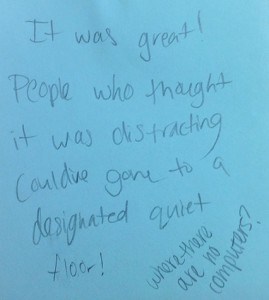 It was great!
People who thought
it was distracting
could've gone to a
designated quiet
floor!
where there
are no
computers?